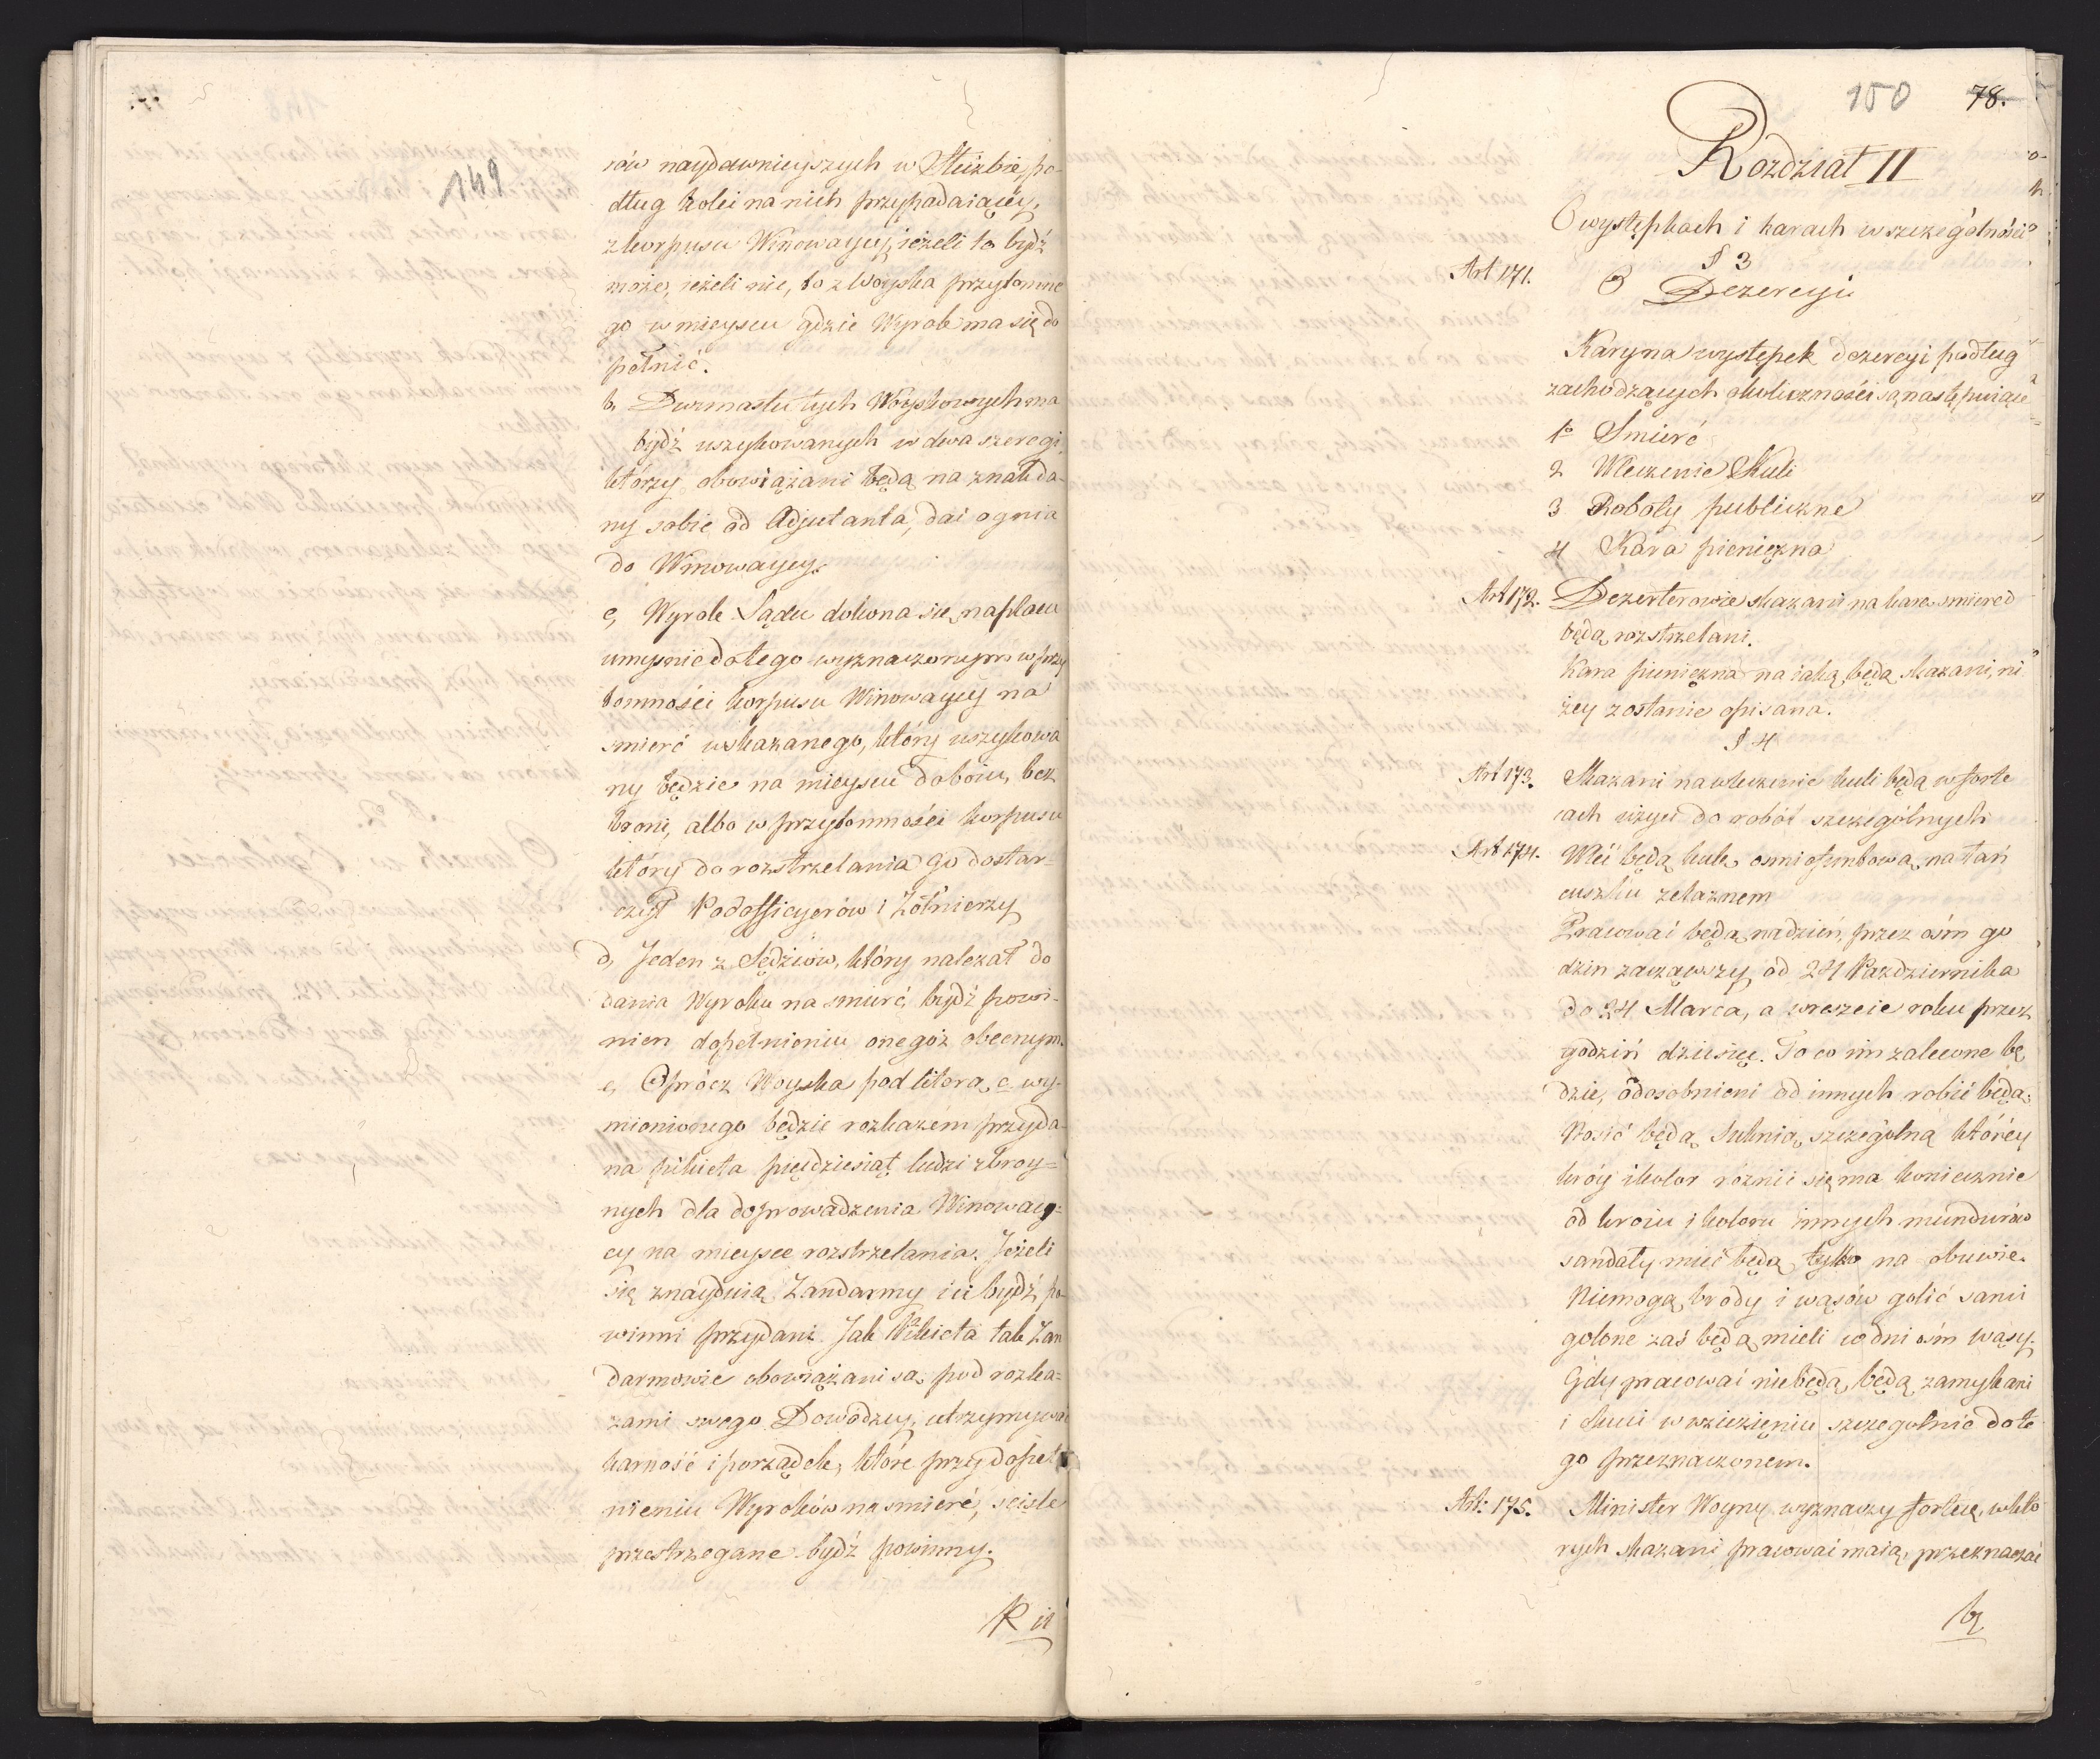 149
rów naydawnieyszych w Służbie, po-
dług kolei na nich przypadaiącey,
z korpusu Winowaycy, ieżeli to bydź
może, ieżeli nie, to z Woyska przytomne
go w mieyscu gdzie Wyrok ma się do
pełnić.
b, Dwunastu tych Woyskowych ma
bydź uszykowanych w dwa szeregi,
którzy obowiązani będą na znak da-
ny sobie od Adjutanta, dać ognia
do Winowaycy.
c, Wyrok Sądu dokona się na placu
umyśnie do tego wyznaczonym w przy
tomności korpusu Winowaycy na
smierć wskazanego, który uszykowa
ny będzie na mieyscu do boiu, bez
broni, albo w przytomności korpusu
który do rozstrzelania go dostar-
czył Podofficyerów i Żołnierzy
d, Jeden z Sędziów, który należał do
dania Wyroku na smierć, bydź powi-
nien dopełnieniu onegoż obecnym.
e, Oprócz Woyska pod literą c wy-
mienionego będzie rozkazem przyda-
na pikieta pięćdziesiąt ludzi zbroy=
nych dla doprowadzenia Winoway=
cy na mieysce rozstrzelania. Jeżeli
się znayduią Żandarmy i ci bydź po-
winni przydani. Jak Pikieta tak Żan
darmowie obowiązani są pod rozka=
zami swego Dowódzcy, utrzymywać
karność i porządek, które przy dopeł
nieniu Wyroków na smierć, scisle
przestrzegane bydź powinny.
150 78.
Rozdział II
O występkach i karach w szczególności
§ 3
Art 171.
O Dezercyi
Kary na występek dezercyi podług
zachodzących okoliczności są następuiące
1º Smierć
2 Wleczenie Kuli
3 Roboty publiczne
4 Kara pieniężna
Art 172. Dezerterowie skazani na karę smierci
będą rozstrzelani.
Kara pieniężna na iaką będą skazani, ni
żey zostanie opisana.
§ 4
Art 173. Skazani na wleczenie kuli będą w forte
cach użyci do robót szczególnych
Art 174. Wlec będą kulę osmiofuntową na łań
cuszku żelaznem
Pracować będą na dzień, przez ośm go
dzin zacząwszy od 24 Pazdziernika
do 24 Marca, a w reszcie roku przez
godziń dziesięć. To co im zalecone bę
dzie, odosobnieni od innych robić będą,
Nosić będą Suknią szczególną którey
króy i kolor różnić się ma koniecznie
od kroiu i koloru innych mundurów
sandały mieć będą tylko na obuwie.
Niemogą brody i wąsów golić sami
golone zaś będą mieli co dni ośm wąsy.
Gdy pracować niebędą, będą zamykani
i skuci w więzieniu szczególnie do te
go przeznaczonem.
Art: 175. Minister Woyny wyznaczy fortece, w któ
rych skazani pracować maią, przeznaczać